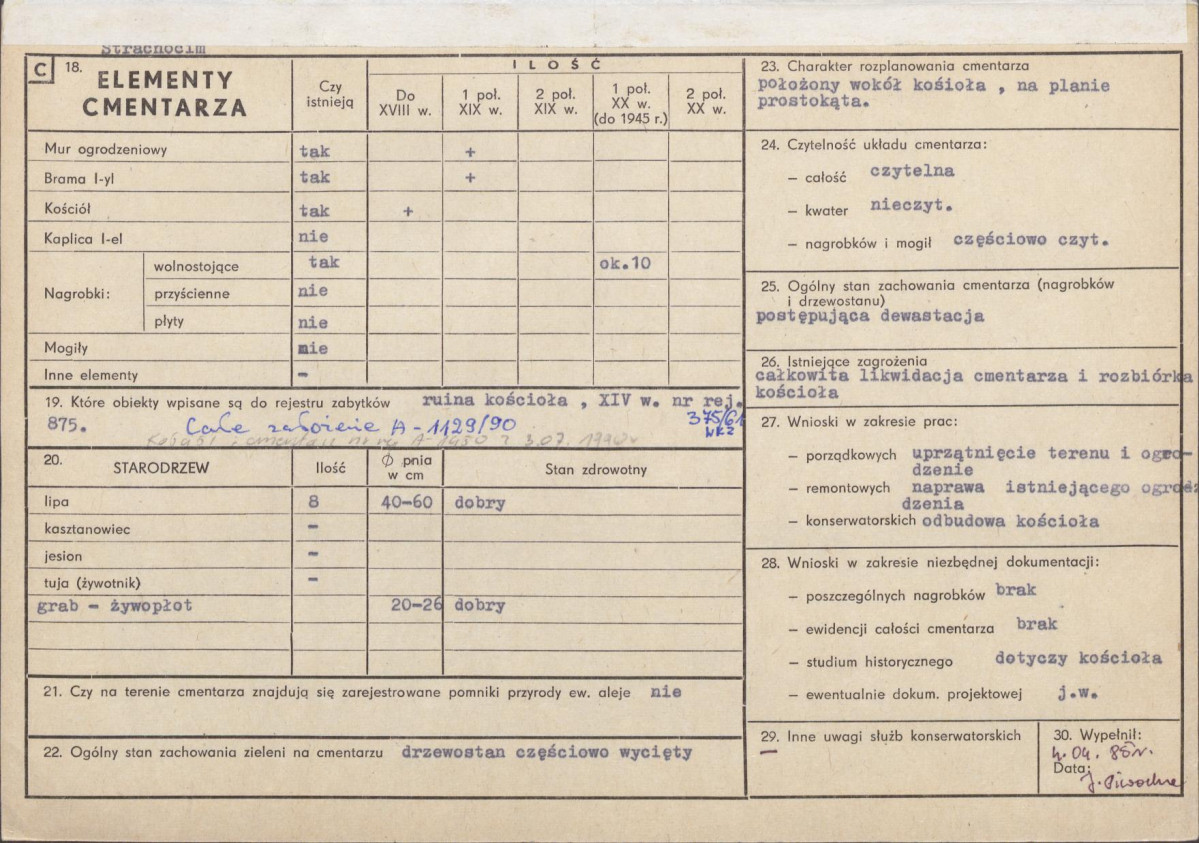 Strachocim
C 18. ELEMENTY CMENTARZA
Czy istnieją
ILOŚĆ
Do XVIII w.
1 poł. XIX w.
2 poł. XIX w.
1 poł. XX w. (do 1945 r.)
2 poł. XX w.
Mur ogrodzeniowy tak +
Brama I-yl tak +
Kościół tak +
Kaplica I-el nie
Nagrobki:
wolnostojące tak ok.10
przyścienne nie
płyty nie
Mogiły nie
Inne elementy -
19. Które obiekty wpisane są do rejestru zabytków ruina kościoła , XIV w. nr rej.
875. Całe założenie A-1129/90 375/61
WKZ
Kościół i cmentarz nr rej A-1950 z 3.07.
20. STARODRZEW Ilość Ø pnia w cm Stan zdrowotny
lipa 8 40-60 dobry
kasztanowiec -
jesion -
tuja (żywotnik) -
grab - żywopłot 20-26 dobry
21. Czy na terenie cmentarza znajdują się zarejestrowane pomniki przyrody ew. aleje nie
22. Ogólny stan zachowania zieleni na cmentarzu drzewostan częściowo wycięty
23. Charakter rozplanowania cmentarza
położony wokół kośioła , na planie
prostokąta.
24. Czytelność układu cmentarza:
- całość czytelna
- kwater nieczyt.
- nagrobków i mogił częściowo czyt.
25. Ogólny stan zachowania cmentarza (nagrobków
i drzewostanu)
postępująca dewastacja
26. Istniejące zagrożenia
całkowita likwidacja cmentarza i rozbiórka
kościoła
27. Wnioski w zakresie prac:
- porządkowych uprzątnięcie terenu i ogro-
dzenie
- remontowych naprawa istniejącego ogrod
dzenia
- konserwatorskich odbudowa kościoła
28. Wnioski w zakresie niezbędnej dokumentacji:
- poszczególnych nagrobków brak
- ewidencji całości cmentarza brak
- studium historycznego dotyczy kościoła
- ewentualnie dokum. projektowej j.w.
29. Inne uwagi służb konserwatorskich
-
30. Wypełnił:
04. 85r.
Data:
J.